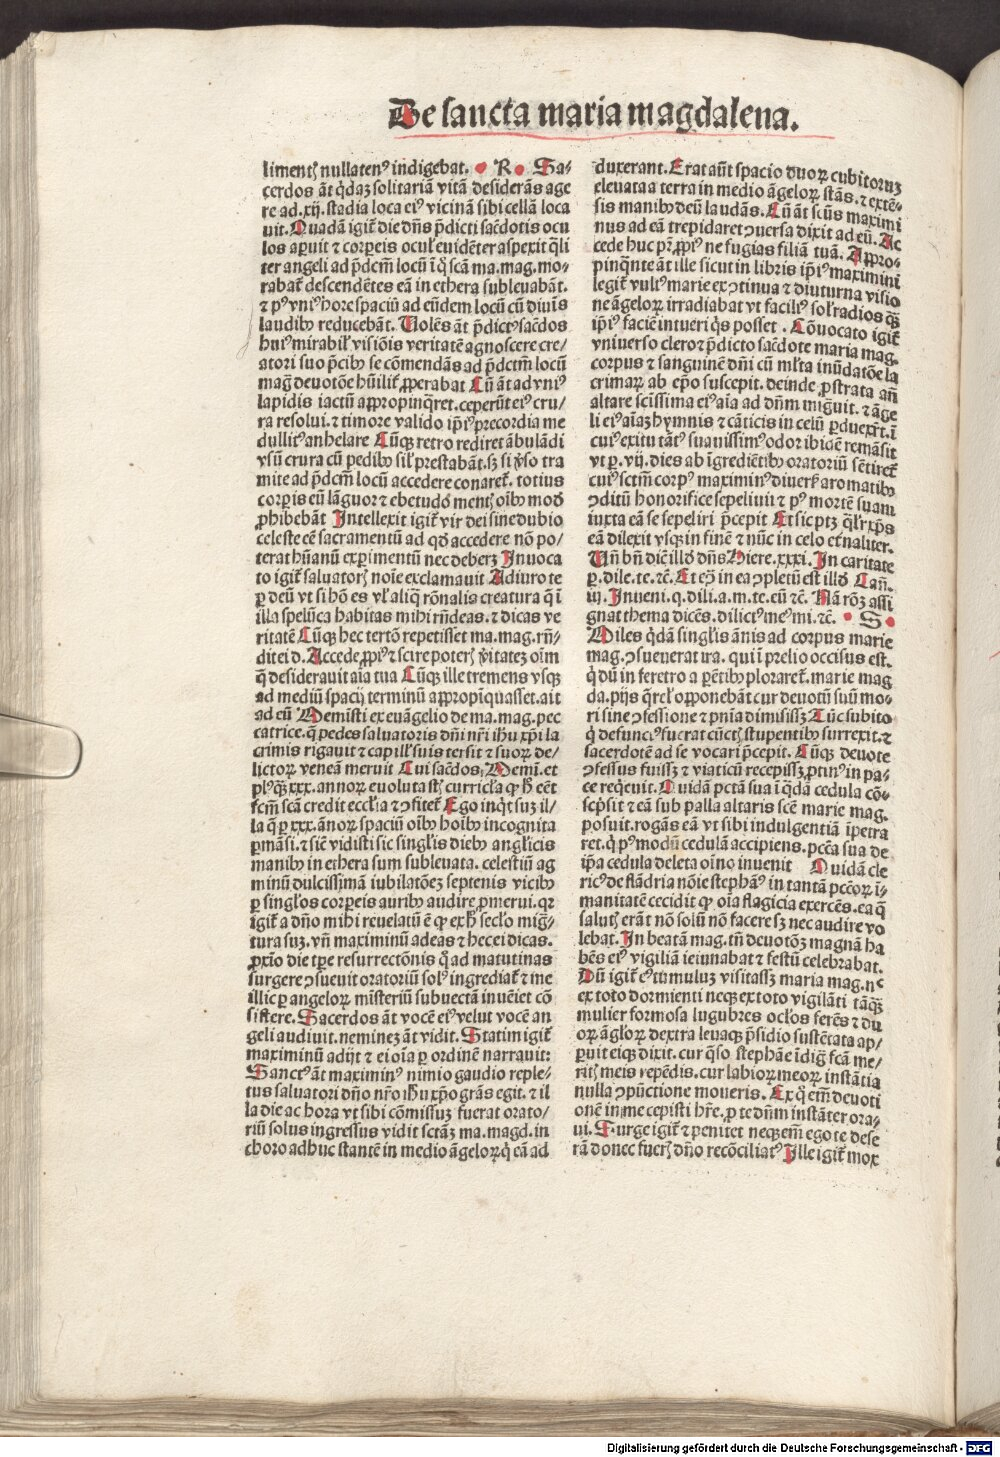 De sancta maria magdalena.
limentꝭ nullatenꝰ indigebat. R. Sa⸗
cerdos āt q̇daȝ solitariā vitā desiderās age
re ad.xij.stadia loca eiꝰ vicinā sibi cellā loca
uit. Quadā igit̄ die dn̄s p̄dicti sac̄dotis ocu
los aꝑuit ⁊ corꝑeis ocul̓ euidēter aspexit q̄li
ter angeli ad p̄dcm̄ locū ī q̇ scā ma.mag.mo⸗
rabat̄ descendētes eā in ethera subleuabāt.
⁊ pꝰ vniꝰ hore spaciū ad eūdem locū cū diuīs
laudibꝰ reducebāt. Volēs āt p̄dictꝰ sac̄dos
huiꝰ mirabil̓ visiōis veritatē agnoscere cre/
atori suo p̄cibꝰ se cōmendās ad p̄dctm̄ locū
maḡ deuotōe hūilit̄ ꝓperabat Cū āt ad vniꝰ
lapidis iactū appropinq̄ret.ceperūt eiꝰ cru/
ra resolui.⁊ timore valido ip̄iꝰ precordia me
dullitꝰ anhelare Cūqȝ retro rediret ābulādi
vsū crura cū pedibꝰ sil̓ prestabāt.sȝ si ip̄o tra
mite ad p̄dcm̄ locū accedere conaret̄. totius
corꝑis eū lāguor ⁊ ebetudo mentꝭ oībꝰ mod̓
ꝓhibebāt Intellexit igit̄ vir dei sine dubio
celeste eē sacramentū ad qd̓ accedere nō po/
terat hūanū exꝑimentū nec deberȝ Inuoca
to igit̄ saluatorꝭ noīe exclamauit Adiuro te
ꝑ deū vt si hō es vl̓ aliq̄ rōnalis creatura q̄ ī
illa spelūca habitas mihi rn̄deas.⁊ dicas ve
ritatē Cūqȝ hec tertō repetisset ma.mag.rn̄/
dit ei d. Accede ꝓpiꝰ ⁊ scire poterꝭ v̓itateȝ oīm
q̄ desiderauit aīa tua Cūqȝ ille tremens vsqȝ
ad mediū spacij terminū appropīquasset.ait
ad eū Meministi ex euāgelio de ma.mag.pec
catrice.q̄ pedes saluatoris dn̄i nr̄i ih̄u xp̄i la
crimis rigauit ⁊ capill̓ suis tersit ⁊ suoꝝ de/
lictoꝝ veneā meruit Cui sac̄dos. Memī.et
plꝰqȝ xxx.annoꝝ euoluta st̄ curric̄la qꝫ h̓ eēt
fcm̄ scā credit eccl̓ia ⁊ ꝯfitet̄ Ego inq̇t suȝ il/
la q̄ ꝑ xxx.ānoꝝ spaciū oībꝰ hoībꝰ incognita
ꝑmāsi.⁊ sic̄ vidisti sic singl̓is diebꝰ anglicis
manibꝰ in ethera sum subleuata. celestiū ag
minū dulcissimā iubilatōeȝ septenis vicibꝰ
ꝑ singl̓os corꝑeis auribꝰ audire ꝓmerui.qꝛ
igit̄ a dn̄o mihi reuelatū ē qꝫ ex h̓ secl̓o miḡ/
tura suȝ. vn̄ maximinū adeas ⁊ hec ei dicas.
ꝓxīo die tꝑe resurrectōnis q̄ ad matutinas
surgere ꝯsueuit oratoriū solꝰ ingrediat̄ ⁊ me
illic ꝑ angeloꝝ mīsteriū subuectā inuēiet cō
sistere. Sacerdos āt vocē eiꝰ velut vocē an
geli audiuit.nemineȝ āt vidit. Statim igit̄
maximinū adijt ⁊ ei oīa ꝑ ordinē narrauit:
Sanctꝰ āt maximinꝰ nimio gaudio reple/
tus saluatori dn̄o nr̄o ih̄u xp̄o grās egit. ⁊ il
la die ac hora vt sibi cōmissuȝ fuerat orato/
riū solus ingressus vidit sctāȝ ma.magd.in
choro adhuc stantē in medio āgeloꝝ q̇ eā ad
duxerant. Erat aūt spacio duoꝝ cubitorum
eleuata a terra in medio āgeloꝝ stās.⁊ extē⸗
sis manibꝰ deū laudās. Cū āt sc̄us maximi
nus ad eā trepidaret ꝯuersa dixit ad eū. Ac
cede huc pr̄.ꝓpiꝰ ne fugias filiā tuā. Appro⸗
pinq̄nte āt ille sicut in libris ip̄iꝰ maximini
legit̄ vultꝰ marie ex ꝯtinua ⁊ diuturna visio
ne āgeloꝝ irradiabat vt faciliꝰ sol̓ radios qȝ
ip̄iꝰ faciē intueri q̇s posset. Cōuocato igit̄
vniuerso clero ⁊ p̄dicto sac̄dote maria mag.
corpus ⁊ sanguinē dn̄i cū ml̓ta inūdatōe la
crimaꝝ ab ep̄o suscepit.deinde ꝓstrata an̄
altare scīssima eiꝰ aīa ad dn̄m miḡuit.⁊ āge
li eiꝰ aīaȝ hymnis ⁊ cāticis in celū ꝑduxer̄t.ī
cuiꝰ exitu tātꝰ suauissimꝰ odor ibidē remāsit
vt ꝑ.vij.dies ab īgrediētibꝰ oratoriū sētiret̄
cuiꝰ sctm̄ corpꝰ maximinꝰ diuers̓ aromatibꝰ
ꝯditū honorifice sepeliuit ⁊ pꝰ mortē suam
iuxta eā se sepeliri p̄cepit Et sic ptȝ q̄lr̄ xp̄s
eā dilexit vsqȝ in finē ⁊ nūc in celo et̄naliter.
Vn̄ bn̄ dic̄ illd̓ dn̄s Hiere.xxxi. In caritate
ꝑ.dile.te.⁊c̄. Et eꝫ in ea ꝯpletū est illd̓ Can̄.
iij. Inueni.q.dili.a.m.te.eū ⁊c̄. Nā rōȝ assi
gnat thema dicēs.dilictꝰ meꝰ mi.⁊c̄. S
Miles q̇dā singl̓is ānis ad corpus marie
mag.ꝯsueuerat ira. qui ī prelio occisus est.
q̄ dū in feretro a parētibꝰ ploraret̄. marie mag
da.pijs q̄rel̓ opponebāt cur deuotū suū mo⸗
ri sine ꝯfessione ⁊ pn̄ia dimisissȝ Tūc subito
q̇ defunctꝰ fuerat cūctꝭ stupentibꝰ surrexit.⁊
sacerdotē ad se vocari p̄cepit. Cūqȝ deuote
ꝯfessus fuissȝ ⁊ viaticū recepissȝ ꝓtinꝰ in pa⸗
ce reqeuit. Quidā pctā sua ī q̇dā cedula cō⸗
sc̄psit ⁊ eā sub palla altaris scē marie mag.
posuit.rogās eā vt sibi indulgentiā īpetra
ret.q̇ pꝰmodū cedulā accipiens.pcc̄a sua de
ip̄a cedula deleta oīno inuenit Quidā cle
ricꝰ de flādria nōie stephāꝰ in tantā pcc̄oꝝ ī⸗
manitatē cecidit qꝫ oīa flagicia exercēs.ea q̄
salutꝭ erāt nō solū nō facere sȝ nec audire vo
lebat. In beatā mag.tn̄ deuotōȝ magnā ha
bēs eiꝰ vigiliā ieiunabat ⁊ festū celebrabat.
Dū igit̄ eꝰ tumuluȝ visitassȝ maria mag.nc̄
ex toto dormienti neqȝ ex toto vigilāti tāqȝ
mulier formosa lugubres ocl̓os ferēs ⁊ du
oꝝ āgl̓oꝝ dextra leuaqȝ p̄sidio sustētata ap/
ꝑuit eiqȝ dixit.cur q̄so stephāe īdiḡ fcā me/
ritꝭ meis repēdis.cur labioꝝ meoꝝ instātia
nulla ꝯpūctione moueris. Ex q̇ em̄ deuoti
onē in me cepisti hr̄e.ꝑ te dn̄m instāter ora⸗
ui. Surge igit̄ ⁊ penitet neqȝ em̄ ego te dese
rā donec fuerꝭ dn̄o recōciliatꝰ Ille igit̄ mox
Digitalisierung gefördert durch die Deutsche Forschungsgemeinschaft - DFG